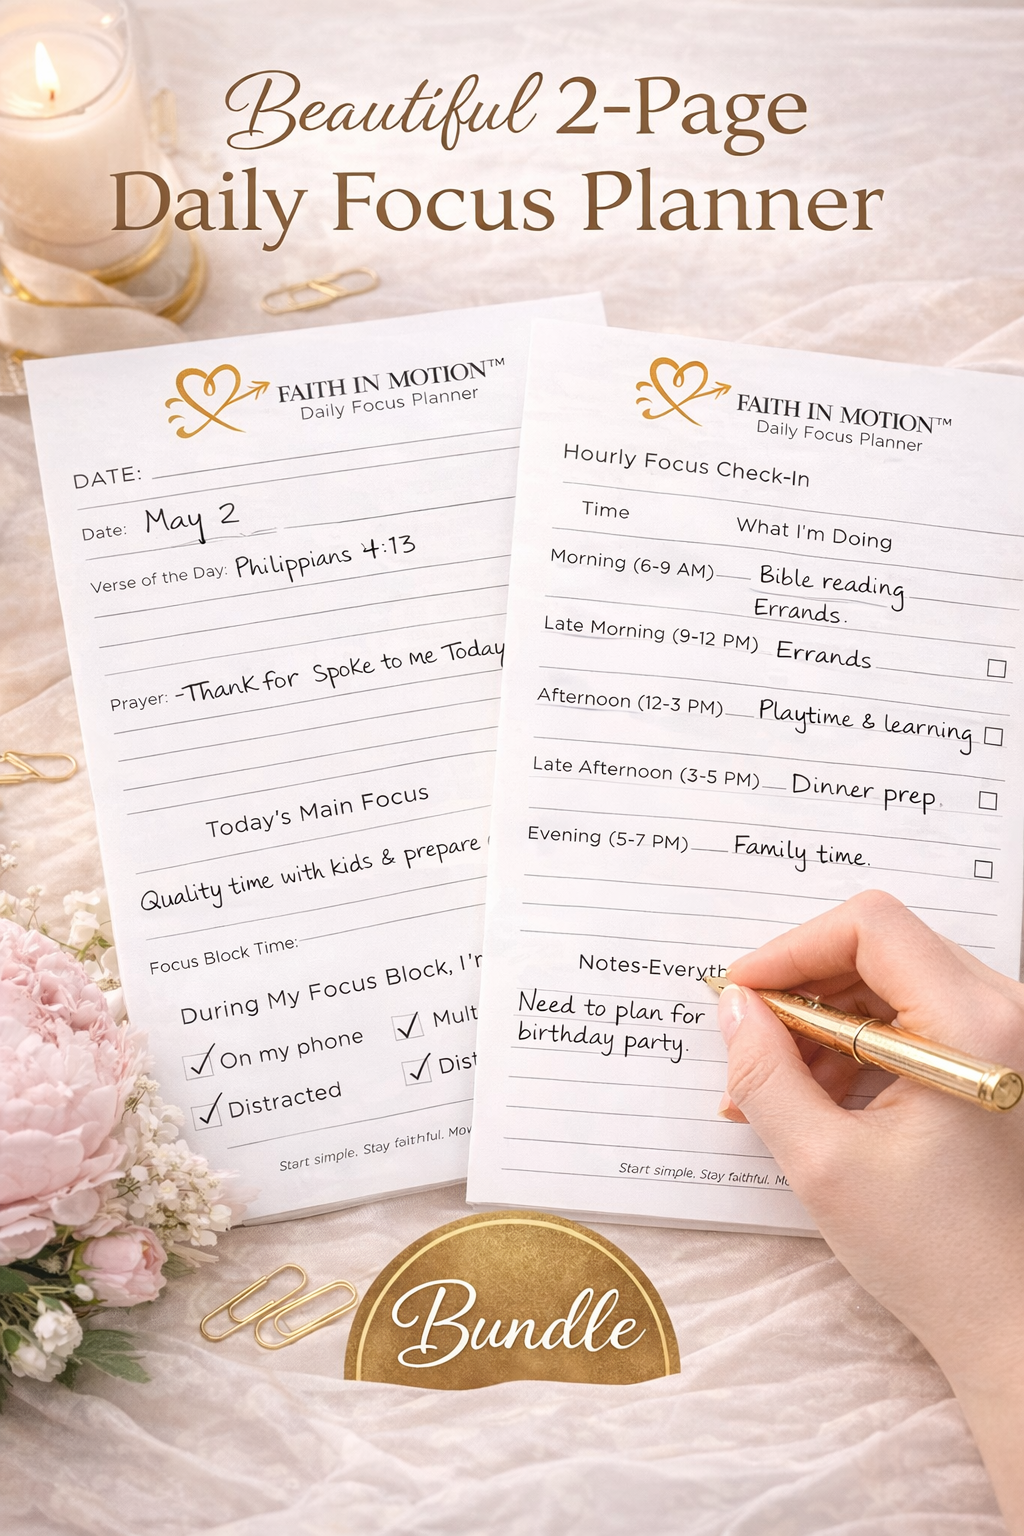 Beautiful 2-Page
Daily Focus Planner
FAITH IN MOTION™
Daily Focus Planner
DATE:
Date: May 2
Verse of the Day: Philippians 4:13
Prayer: -Thank for Spoke to me Today
Today's Main Focus
Quality time with kids & prepare
Focus Block Time:
During My Focus Block, I'm
On my phone
Mult
Distracted
Dist
Start simple. Stay faithful. Mov
FAITH IN MOTION™
Daily Focus Planner
Hourly Focus Check-In
Time What I'm Doing
Morning (6-9 AM) Bible reading
Errands.
Late Morning (9-12 PM) Errands
Afternoon (12-3 PM) Playtime & learning
Late Afternoon (3-5 PM) Dinner prep.
Evening (5-7 PM) Family time.
Notes-Everyth
Need to plan for
birthday party.
Start simple. Stay faithful. Mo
Bundle